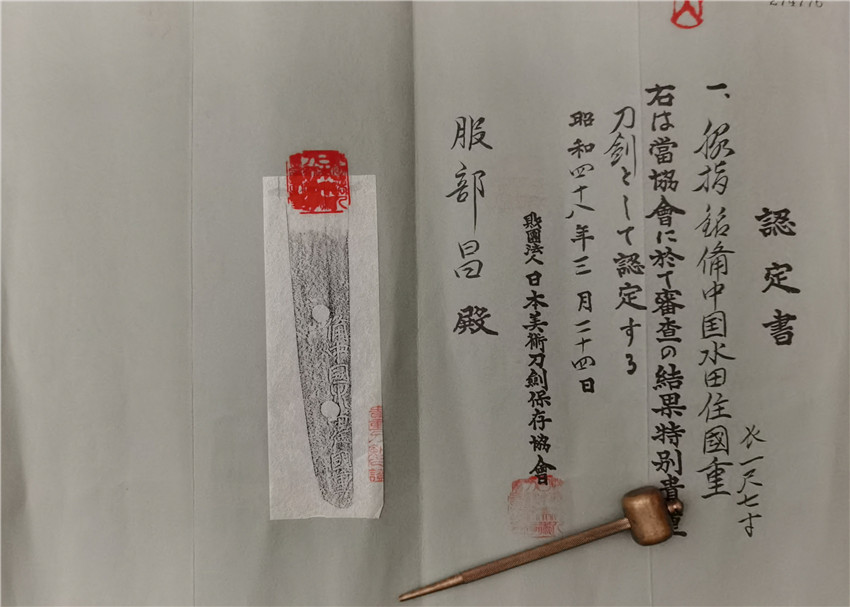 認定書
一、脇指 銘備中国水田住國重
長一尺七寸
右は當協會に於て審査の結果特別貴重
刀劍として認定する
昭和四十八年三月二十四日
財團法人日本美術刀劍保存協會
服部昌殿